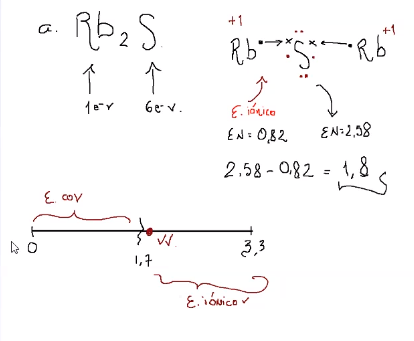 a. Rb₂S
1e-v 6e-v.
+1 +1
Rb S Rb
E. iónico
EN = 0,82 EN = 2,58
2,58 - 0,82 = 1,8
E. cov
0 1,7 3,3
E. iónico